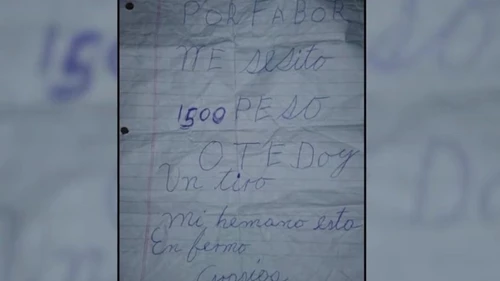 POR FABOR
NE sesito
1500 PESO
O TE Doy
Un tiro
Mi hemano esta
En fermo